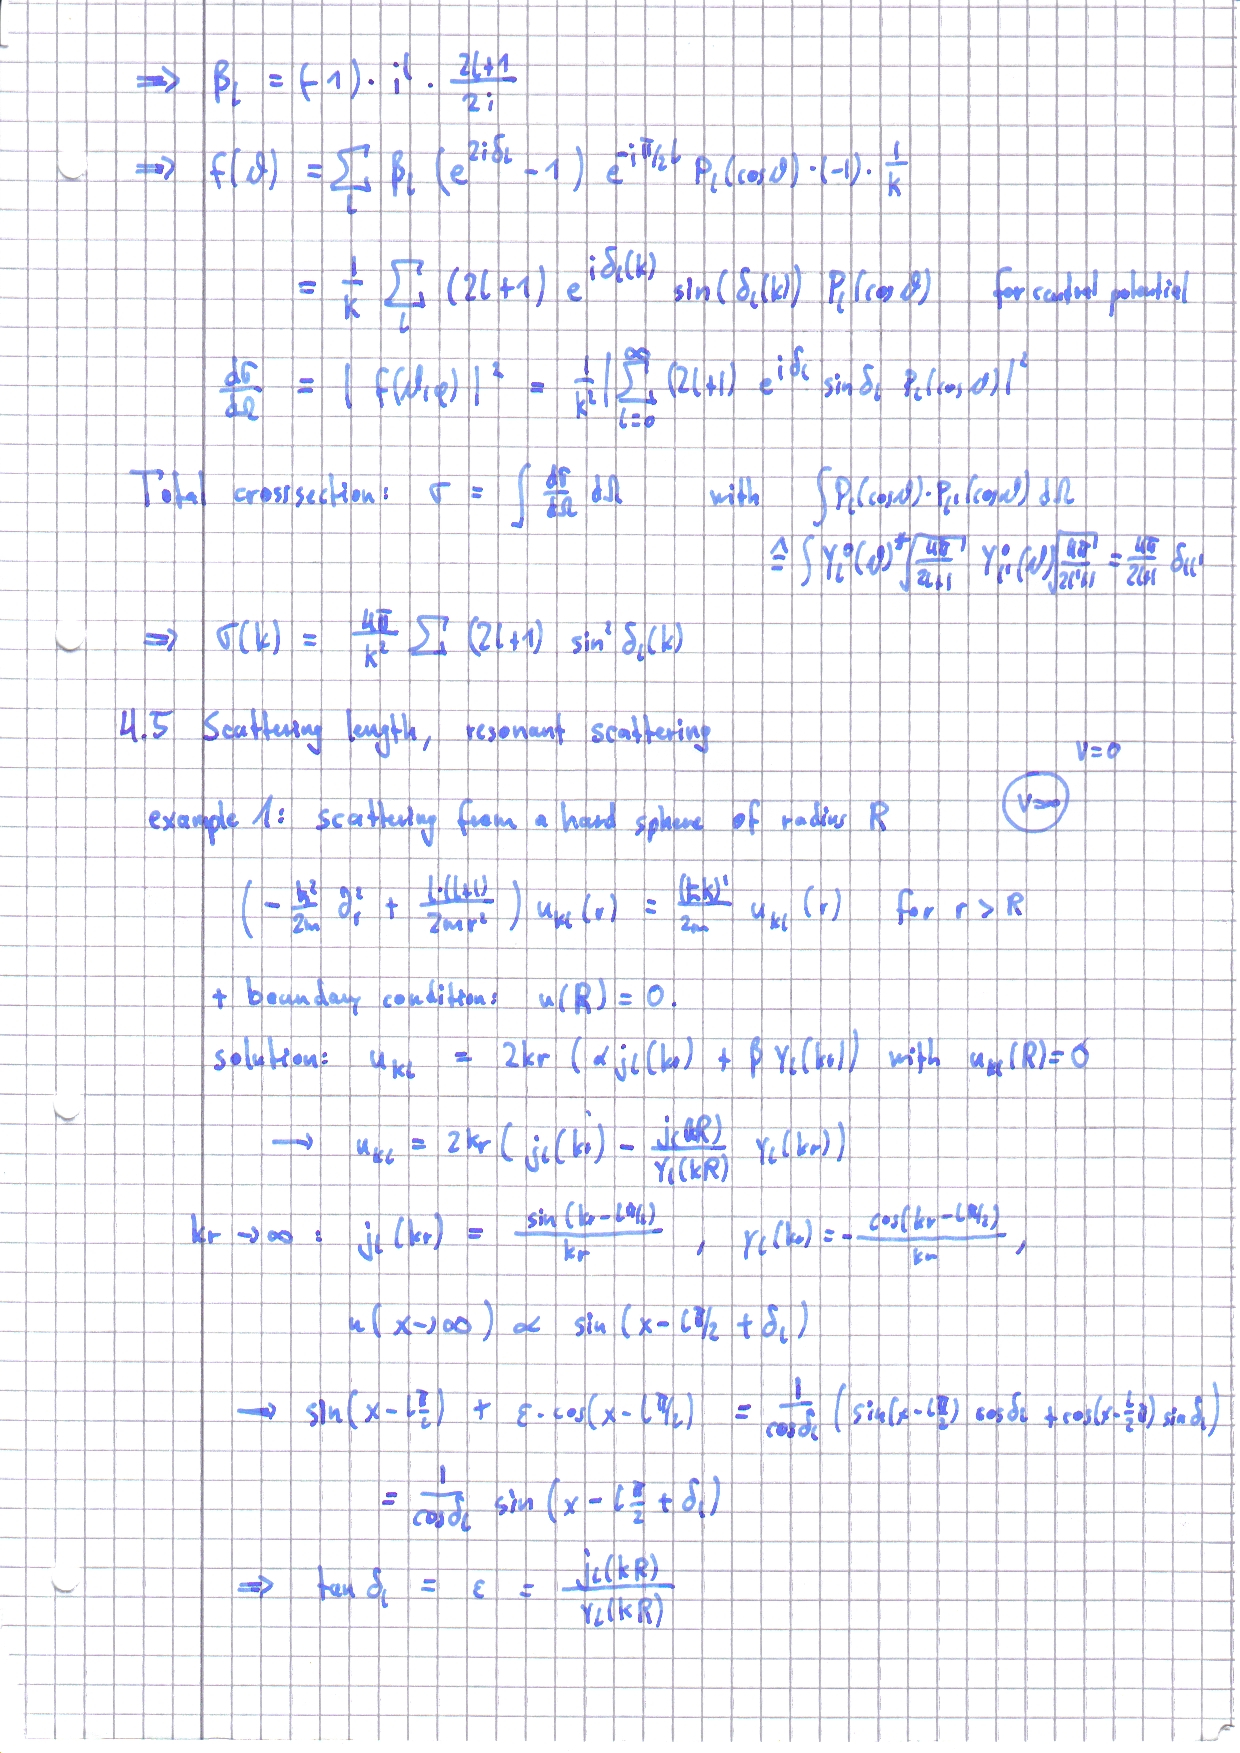 ⇒ β_l = (-1) · i^l · (2l+1)/(2i)
⇒ f(ϑ) = Σ_l β_l (e^{2iδ_l} - 1) e^{-iπ/2 l} P_l(cosϑ) · (-1) · 1/k
= 1/k Σ_l (2l+1) e^{iδ_l(k)} sin(δ_l(k)) P_l(cosϑ) for central potential
dσ/dΩ = |f(ϑ,φ)|² = 1/k² |Σ_{l=0}^∞ (2l+1) e^{iδ_l} sin δ_l P_l(cosϑ)|²
Total crosssection: σ = ∫ dσ/dΩ dΩ with ∫P_l(cosϑ)·P_l'(cosϑ) dΩ
≙ ∫ Y_l^0(ϑ)* √(4π/(2l+1)) Y_l'^0(ϑ) √(4π/(2l'+1)) = 4π/(2l+1) δ_ll'
⇒ σ(k) = 4π/k² Σ (2l+1) sin² δ_l(k)
4.5 Scattering length, resonant scattering
V=0
example 1: scattering from a hard sphere of radius R V=∞
(-ħ²/2m ∂_r² + l·(l+1)/(2mr²)) u_kl(r) = (ħk)²/2m u_kl(r) for r > R
+ boundary condition: u(R) = 0.
solution: u_kl = 2kr (α j_l(kr) + β Y_l(kr)) with u_kl(R) = 0
→ u_kl = 2kr (j_l(kr) - j_l(kR)/Y_l(kR) Y_l(kr))
kr → ∞ : j_l(kr) = sin(kr-lπ/2)/kr , Y_l(kr) = - cos(kr-lπ/2)/kr ,
u(x→∞) ∝ sin(x - lπ/2 + δ_l)
→ sin(x - lπ/2) + ε·cos(x - lπ/2) = 1/cosδ_l (sin(x-lπ/2) cosδ_l + cos(x-l/2 π) sinδ_l)
= 1/cosδ_l sin(x - lπ/2 + δ_l)
⇒ tan δ_l = ε = j_l(kR)/Y_l(kR)